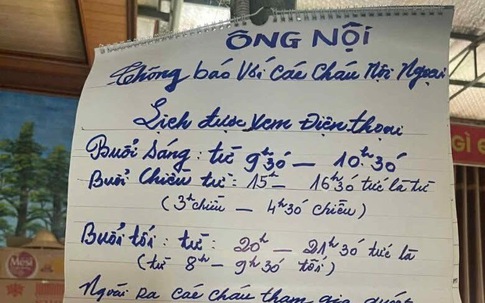 ÔNG NỘI
Thông báo Với các cháu Nội Ngoại
Lịch được xem Điện thoại
Buổi Sáng: từ 9h30 — 10h30
Buổi Chiều từ: 15h — 16h30 tức là từ
(3h chiều — 4h30 chiều)
Buổi tối: từ: 20h — 21h30 tức là
(từ 8h — 9h30 tối)
Ngoài ra các cháu tham gia
GÌ
Mesi